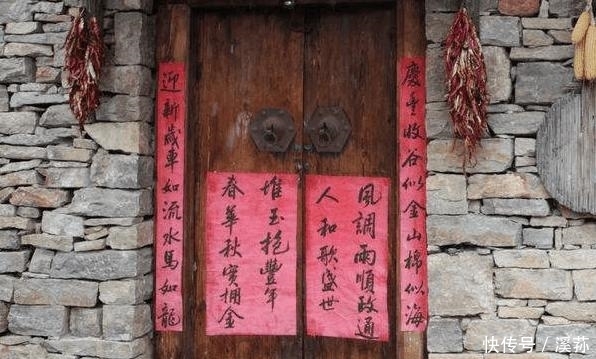 慶丰收谷似金山棉似海
迎新歲車如流水馬如龍
風調雨順政通
人和歌盛世
春華秋實拥金
堆玉抱豐年
快传号/溪荪